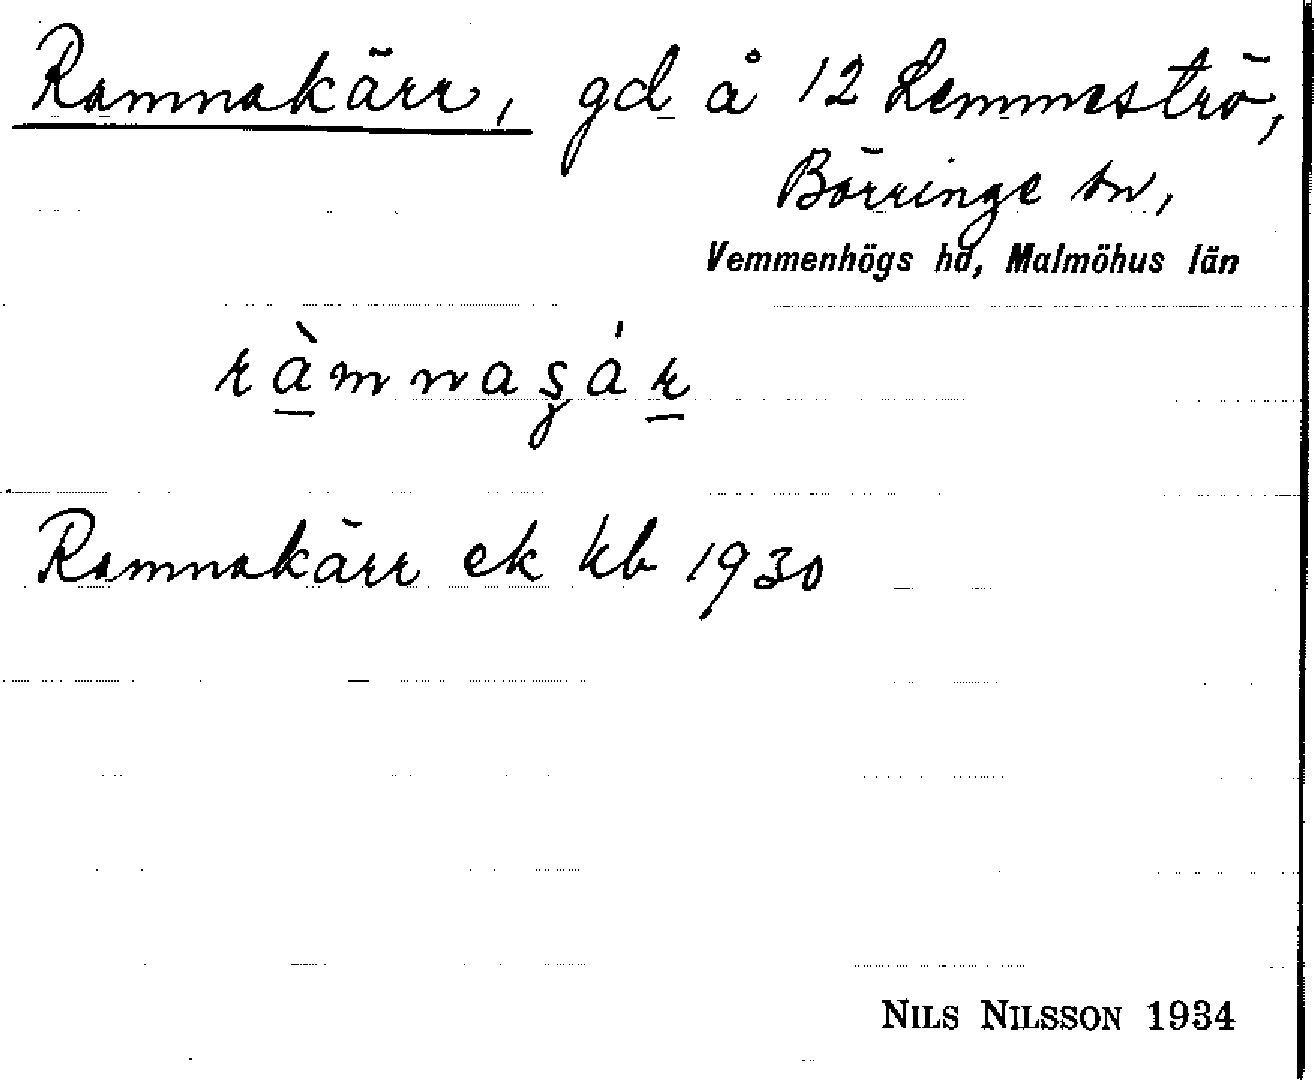 Ramnakärr, gd å 12 Lemmeströ,
Börringe sn,
Vemmenhögs hd, Malmöhus län
Ramnakärr ek kb 1930
NILS NILSSON 1934